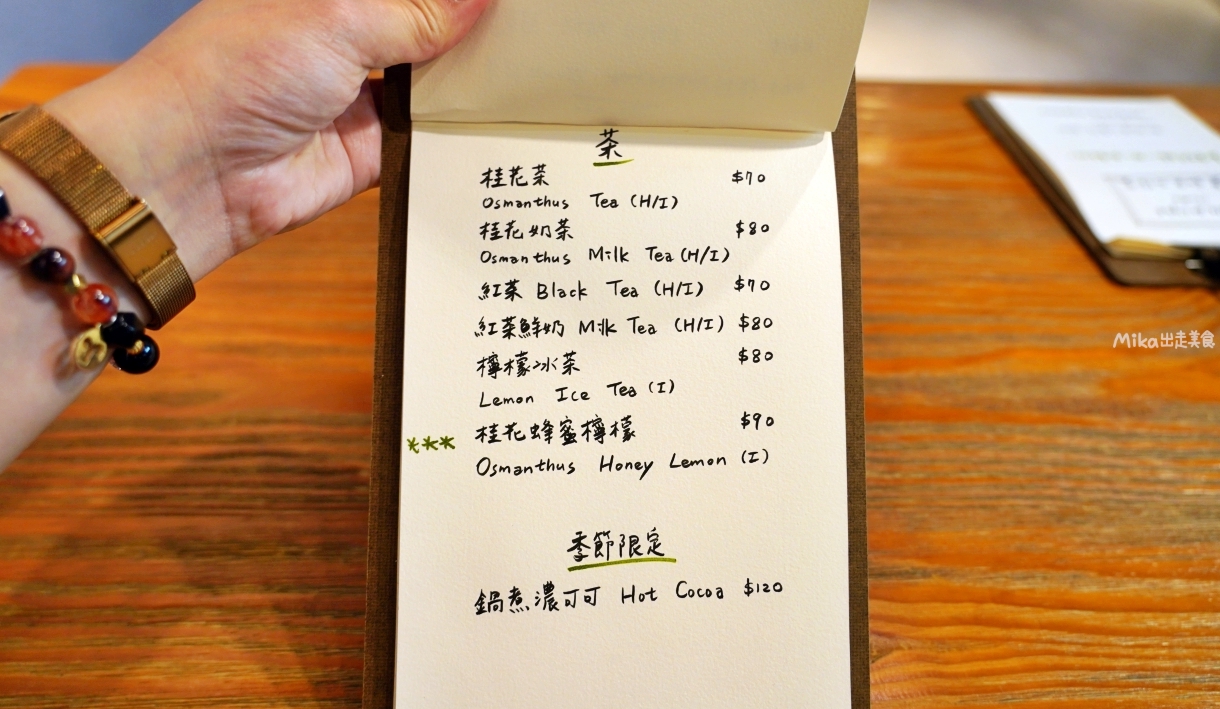 茶
桂花茶 $70
Osmanthus Tea (H/I)
桂花奶茶 $80
Osmanthus Milk Tea (H/I)
紅茶 Black Tea (H/I) $70
紅茶鮮奶 Milk Tea (H/I) $80
檸檬冰茶 $80
Lemon Ice Tea (I)
*** 桂花蜂蜜檸檬 $90
Osmanthus Honey Lemon (I)
季節限定
鍋煮濃可可 Hot Cocoa $120
Mika出走美食